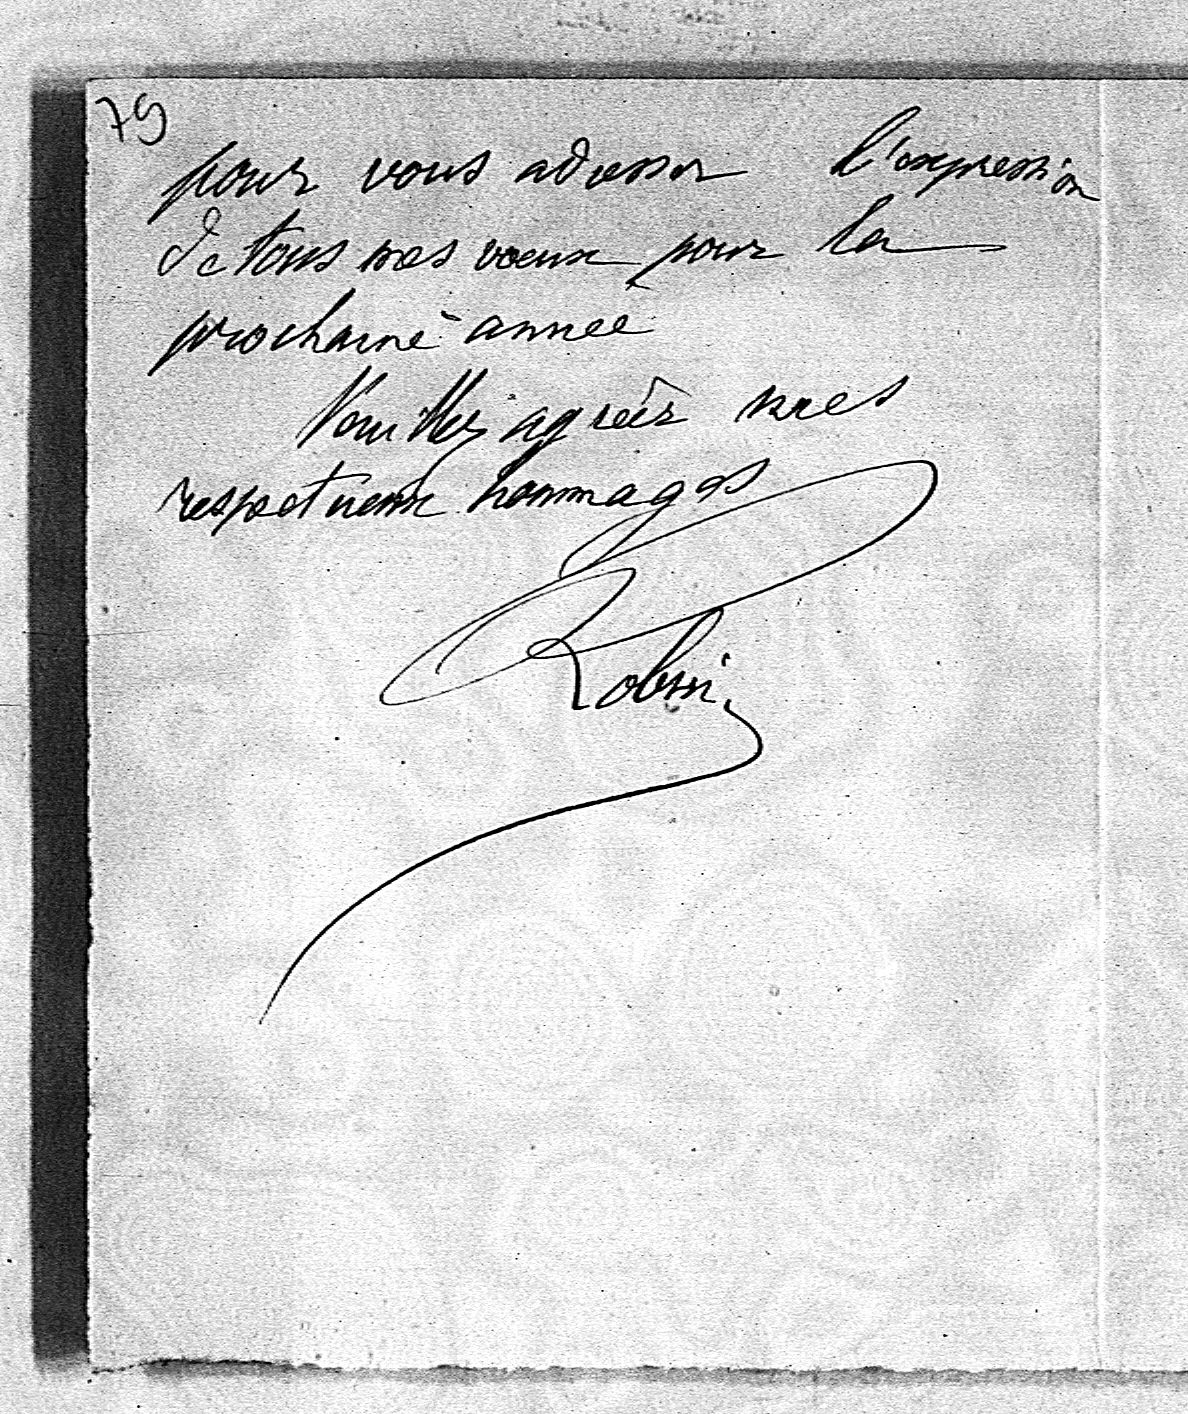 79
pour vous adresser l'expression
de tous mes vœux pour la
prochaine année
Veuillez agréer mes
respectueux hommages
Robin